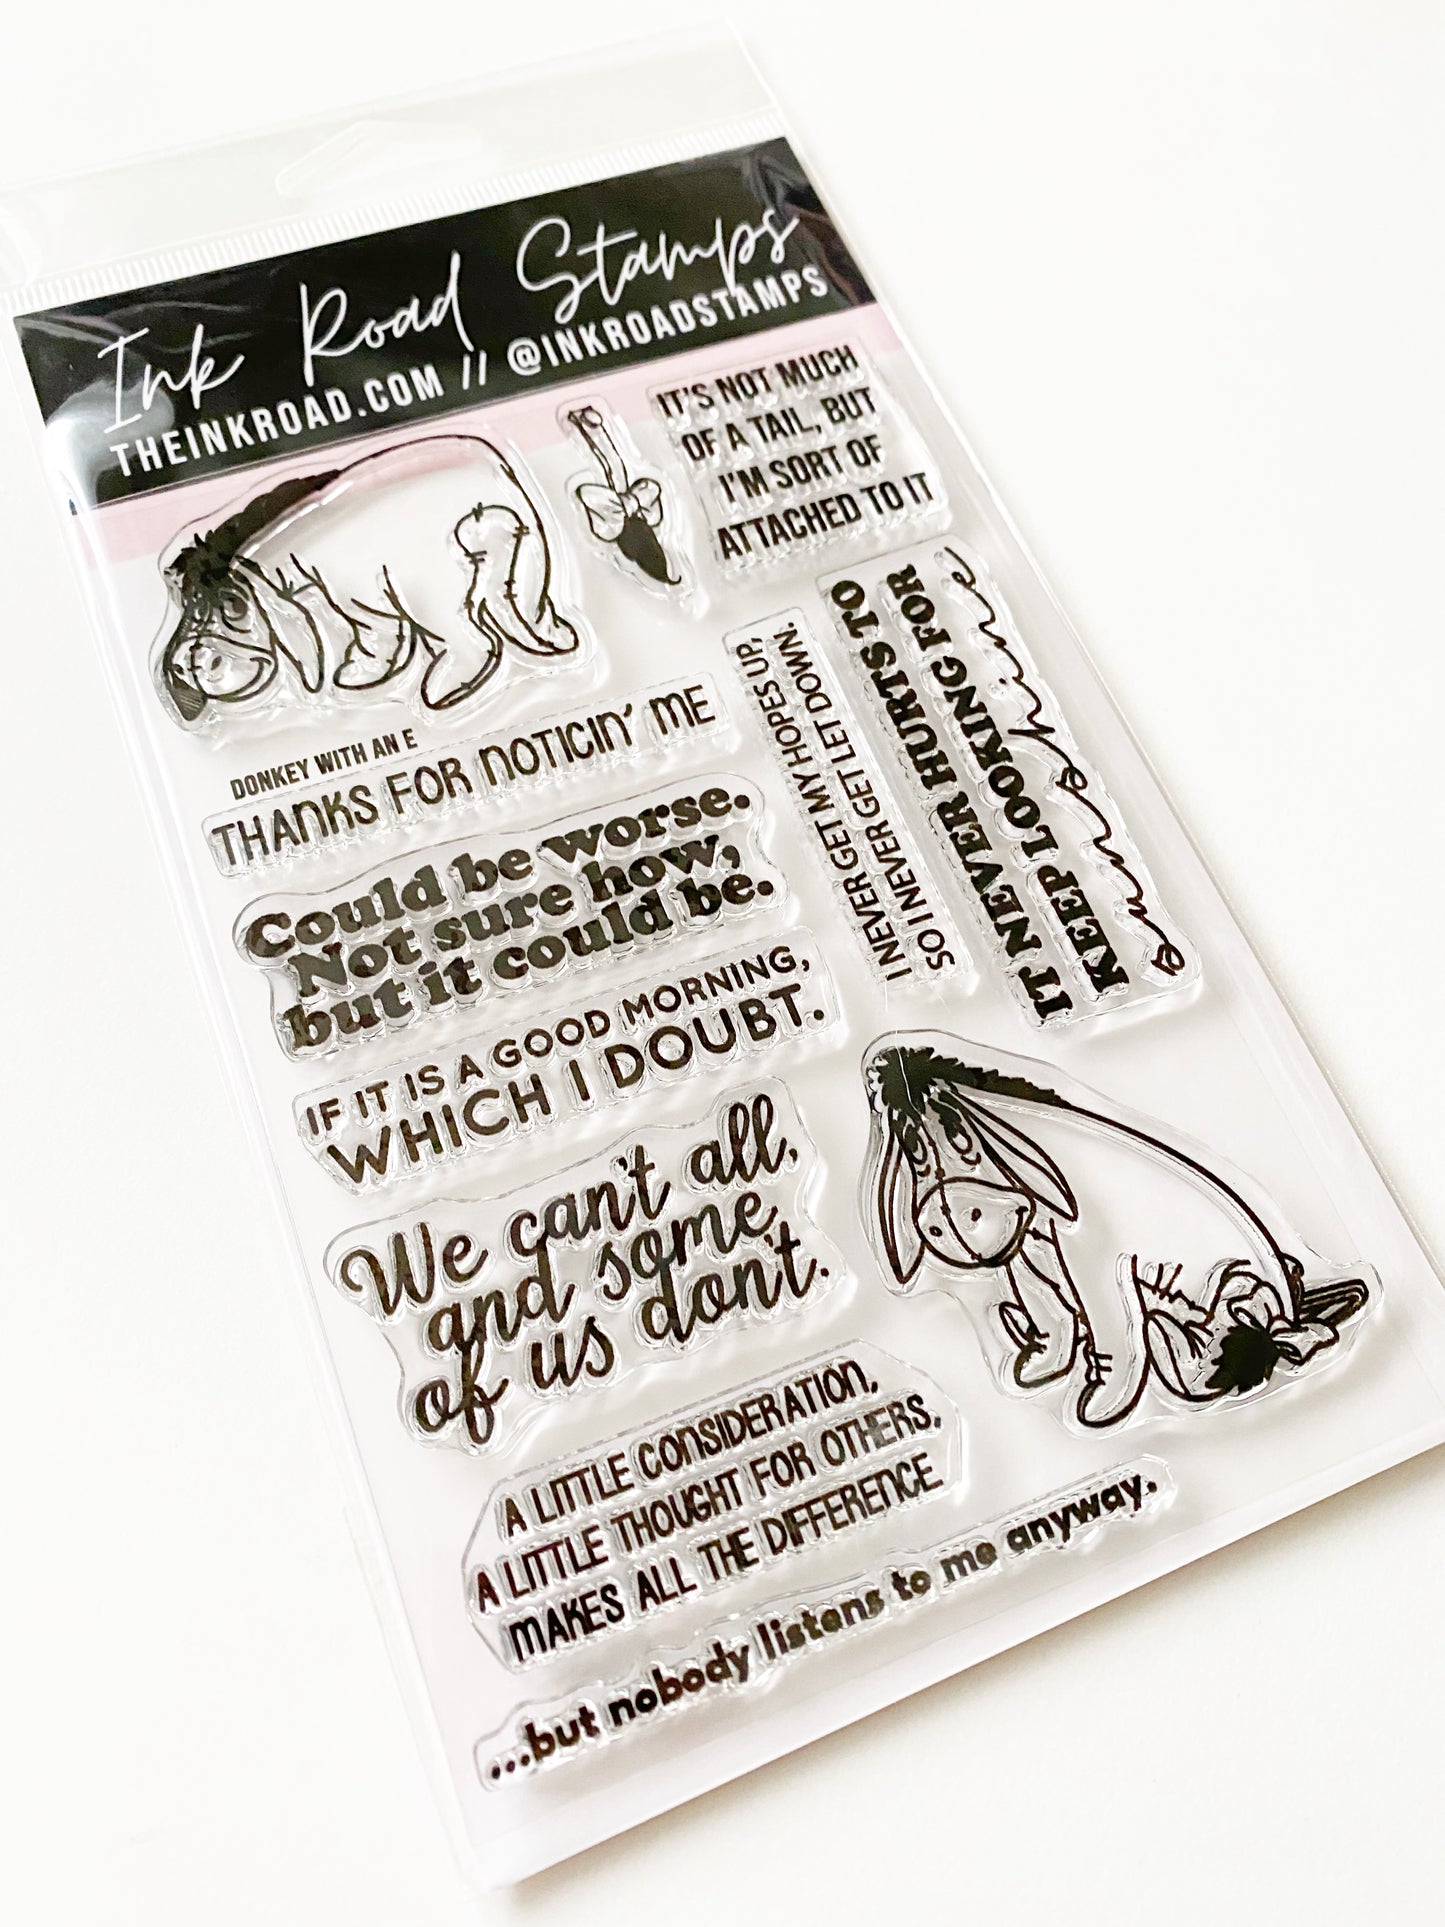 Ink Road Stamps
THEINKROAD.COM // @INKROADSTAMPS
IT'S NOT MUCH
OF A TAIL, BUT
I'M SORT OF
ATTACHED TO IT
DONKEY WITH AN E
THANKS FOR NOTICIN' ME
Could be worse.
Not sure how,
but it could be.
IF IT IS A GOOD MORNING,
WHICH I DOUBT.
We can't all,
and some
of us don't.
I NEVER GET MY HOPES UP,
SO I NEVER GET LET DOWN.
IT NEVER HURTS TO
KEEP LOOKING FOR
sunshine
A LITTLE CONSIDERATION,
A LITTLE THOUGHT FOR OTHERS,
MAKES ALL THE DIFFERENCE
...but nobody listens to me anyway.